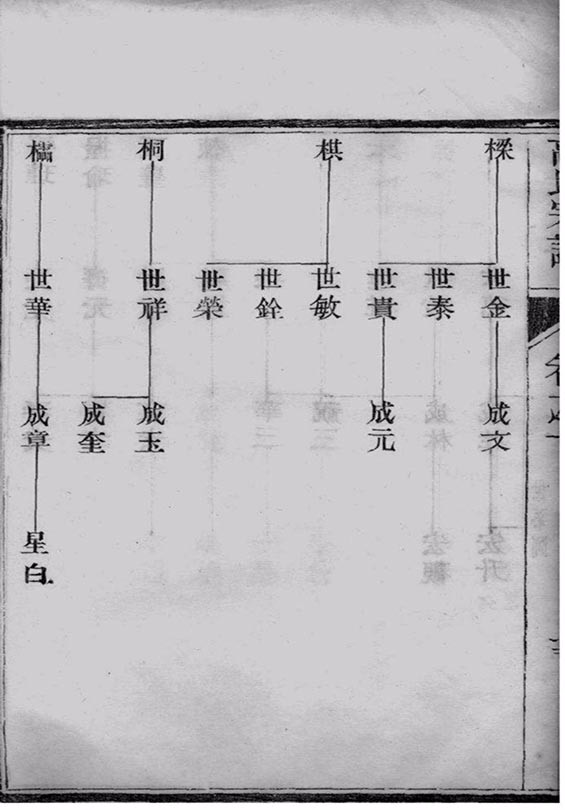 樑
棋
桐
櫺
世金
世泰
世貴
世敏
世銓
世榮
世祥
世華
成文
成元
成玉
成奎
成章
星白